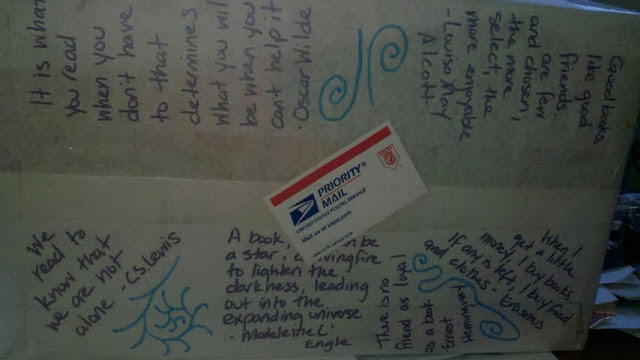 It is what
you read
when you
don't have
to that
determines
what you will
be when you
can't help it
- Oscar Wilde
Good books,
like good
friends,
are few
and chosen,
the more
select, the
more enjoyable
- Louisa May
Alcott
PRIORITY®
MAIL
UNITED STATES POSTAL SERVICE
Visit us at usps.com
We
read to
know that
we are not
alone - C.S. Lewis
A book, be
a star, fire
to lighten the
darkness, leading
out into the
expanding universe
- Madeleine L'
Engle
There is no
friend as loyal
as a book
Ernest
Hemingway
When I
get a little
money, I buy books,
If any is left, I buy food
and clothes - Erasmus